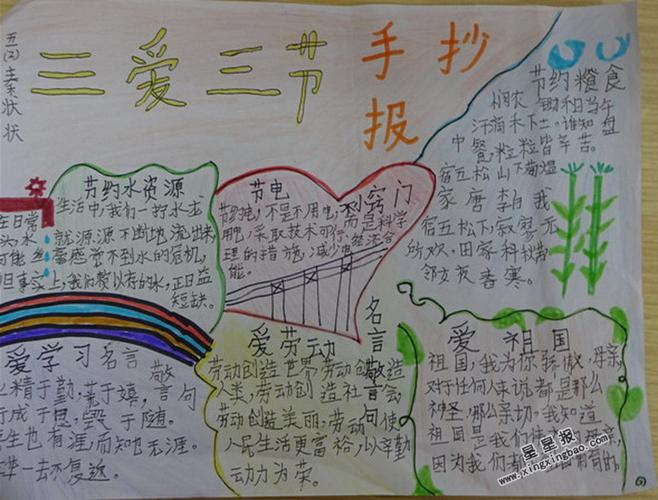 三爱三节手抄报
五(2) 秦状状
节约粮食
悯农 锄禾日当午
汗滴禾下土。谁知盘
中餐粒粒皆辛苦。
宿五松山下荀媪
家 唐 李白 我
宿五松下,寂寥无
所欢。田家秋
邻女夜舂寒。
节约水资源
生活中,我们一拧水龙
在日常
头,水 就源源不断地流出来,
可能 丝 毫感觉不到水的危机,
但事实上,我们赖以存的水,正日益
短缺。
节电 小窍门
节约电,不是不用电,而是科学
用电,采取技术可行
理的措施,减少电能
能。
爱学习名言
警句
精于勤,荒于嬉,
行成于思,毁于随。
生也有涯,而知也无涯。
一去不复返
爱劳动 名言
警句
劳动创造世界,劳动创造
人类,劳动创造社会,
劳动创造美丽;劳动使
人民生活更富裕,以辛勤
动力为荣。
爱祖国
祖国,我为你骄傲,母亲
对于任何人来说都是那么
神圣,那么亲切。我知道
祖国是我们
因为我们都 育的。
星星报
www.xingxingbao.com